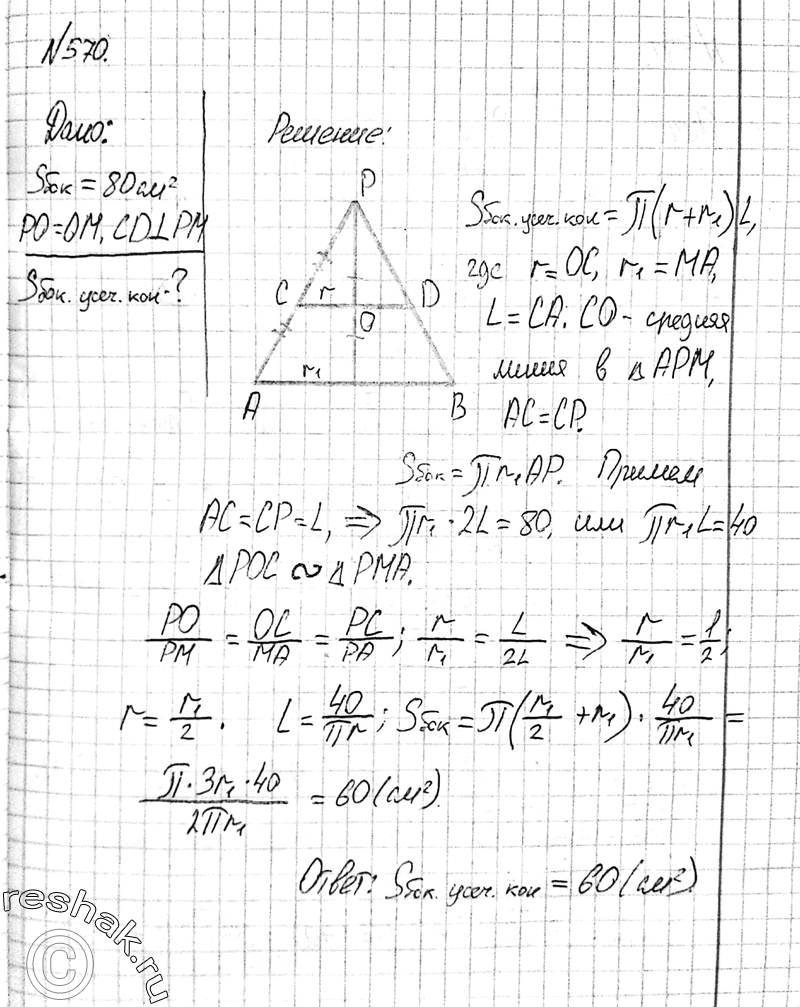 N570.
Дано:
Sбок = 80 см²
PO=OM, CD⊥PM
Sбок. усеч. кон - ?
Решение:
P
C r D
O
r₁
A B
Sбок. усеч. кон = π(r+r₁)L,
где r=OC, r₁=MA,
L=CA. CO - средняя
линия в ΔAPM,
AC=CP.
Sбок = πr₁AP. Примем
AC=CP=L, ⇒ πr₁·2L=80, или πr₁L=40
ΔPOC ∾ ΔPMA.
PO/PM = OC/MA = PC/PA; r/r₁ = L/2L ⇒ r/r₁ = 1/2;
r = r₁/2. L = 40/πr; Sбок = π(r₁/2 + r₁)· 40/πr₁ =
π·3r₁·40/2πr₁ = 60 (см²).
Ответ: Sбок. усеч. кон = 60 (см²).
reshak.ru
©